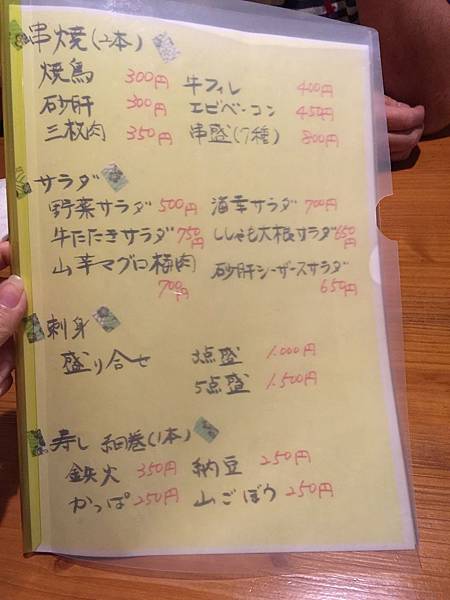 串焼(2本)
焼鳥 300円 牛フィレ 400円
砂肝 300円 エビベーコン 450円
三枚肉 350円 串盛(7種) 800円
サラダ
野菜サラダ 500円 海幸サラダ 700円
牛たたきサラダ 750円 ししゃも大根サラダ 650円
山芋マグロ梅肉 700円 砂肝シーザースサラダ 650円
刺身
盛り合せ 3点盛 1.000円
5点盛 1.500円
寿し 細巻(1本)
鉄火 350円 納豆 250円
かっぱ 250円 山ごぼう 250円